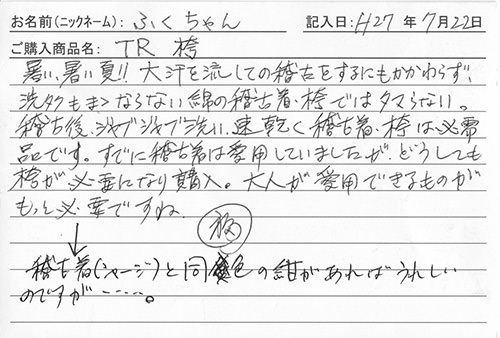 お名前(ニックネーム): ふくちゃん 記入日: H27 年 7月 22日
ご購入商品名: TR 袴
暑い、暑い夏!! 大汗を流しての稽古をするにもかかわらず、
洗タクもまゝならない綿の稽古着・袴ではタマらない。
稽古後、ジャブジャブ洗い、速乾く稽古着・袴は必需
品です。すでに稽古着は愛用していましたが、どうしても
袴が必要になり購入。大人が愛用できるものが
もっと必要ですね。
稽古着(ジャージ)と同色の紺があればうれしい
のですが‥‥。